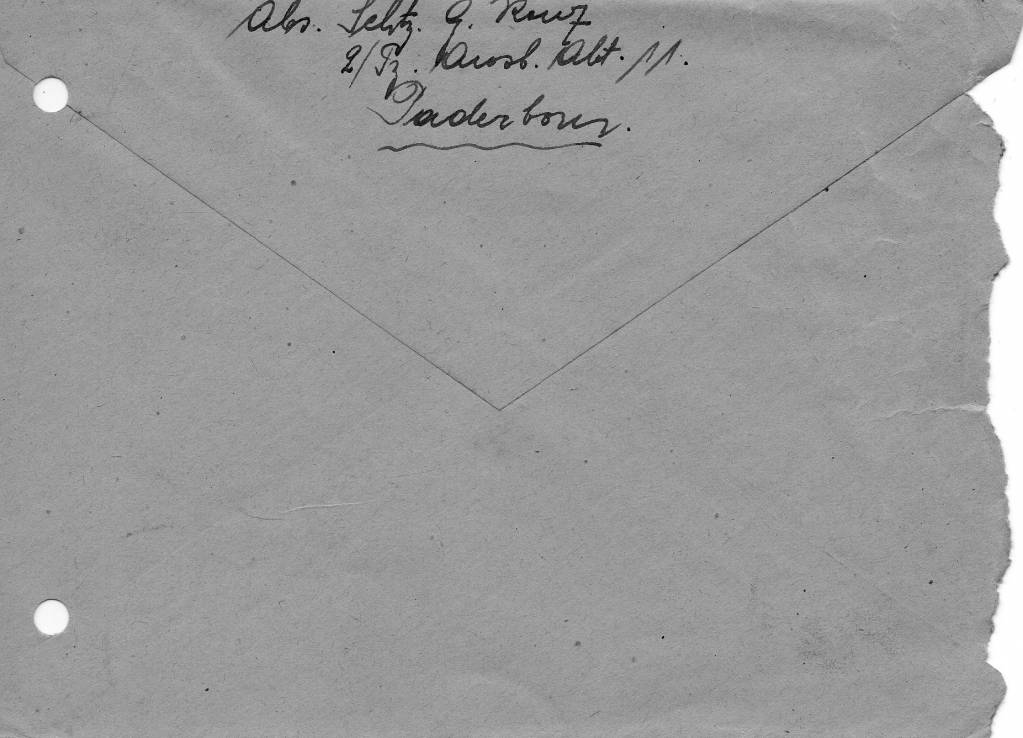 Abs. Schtz. G. Kunz
2/Pz. Ausb. Abt. 11.
Paderborn.